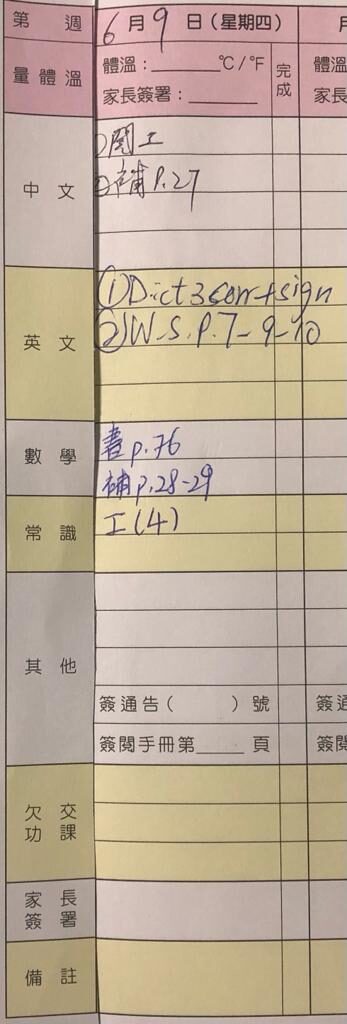 第 週
6月9日(星期四)
量體溫
體溫:______°C/°F
家長簽署:______
完成
體溫
家長
中文
①閱工
②補P.27
英文
①Dict 3 corr+sign
②W.S.P.7-9-10
數學
書p.76
補p.28-29
常識
工(4)
其他
簽通告( )號
簽閱手冊第____頁
簽通
簽閱
欠交功課
家長簽署
備註